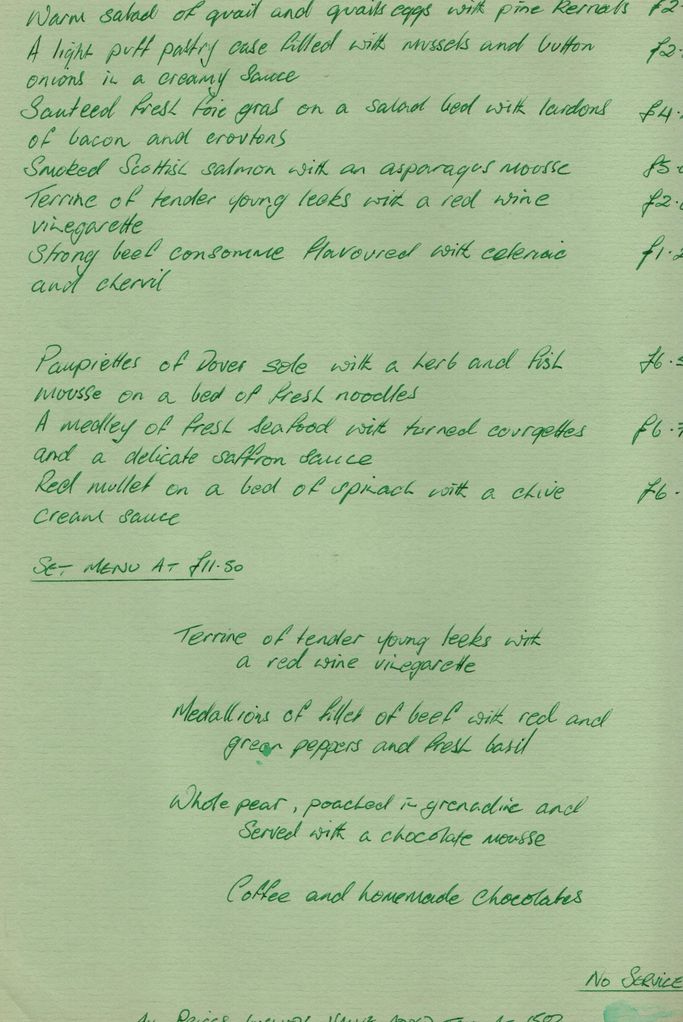 Warm salad of quail and quails eggs with pine kernals £2
A light puff pastry case filled with mussels and button £2.
onions in a creamy sauce
Sauteed fresh foie gras on a salad bed with lardons £4.
of bacon and croutons
Smoked Scottish salmon with an asparagus mousse £5.
Terrine of tender young leeks with a red wine £2.
vinegarette
Strong beef consomme flavoured with celeriac £1.2
and chervil
Paupiettes of Dover sole with a herb and fish £6.5
mousse on a bed of fresh noodles
A medley of fresh seafood with turned courgettes £6.7
and a delicate saffron sauce
Red mullet on a bed of spinach with a chive £6.
cream sauce
SET MENU AT £11.50
Terrine of tender young leeks with
a red wine vinegarette
Medallions of fillet of beef with red and
green peppers and fresh basil
Whole pear, poached in grenadine and
served with a chocolate mousse
Coffee and homemade chocolates
NO SERVICE
ALL PRICES INCLUDE VALUE ADDED TAX AT 15%